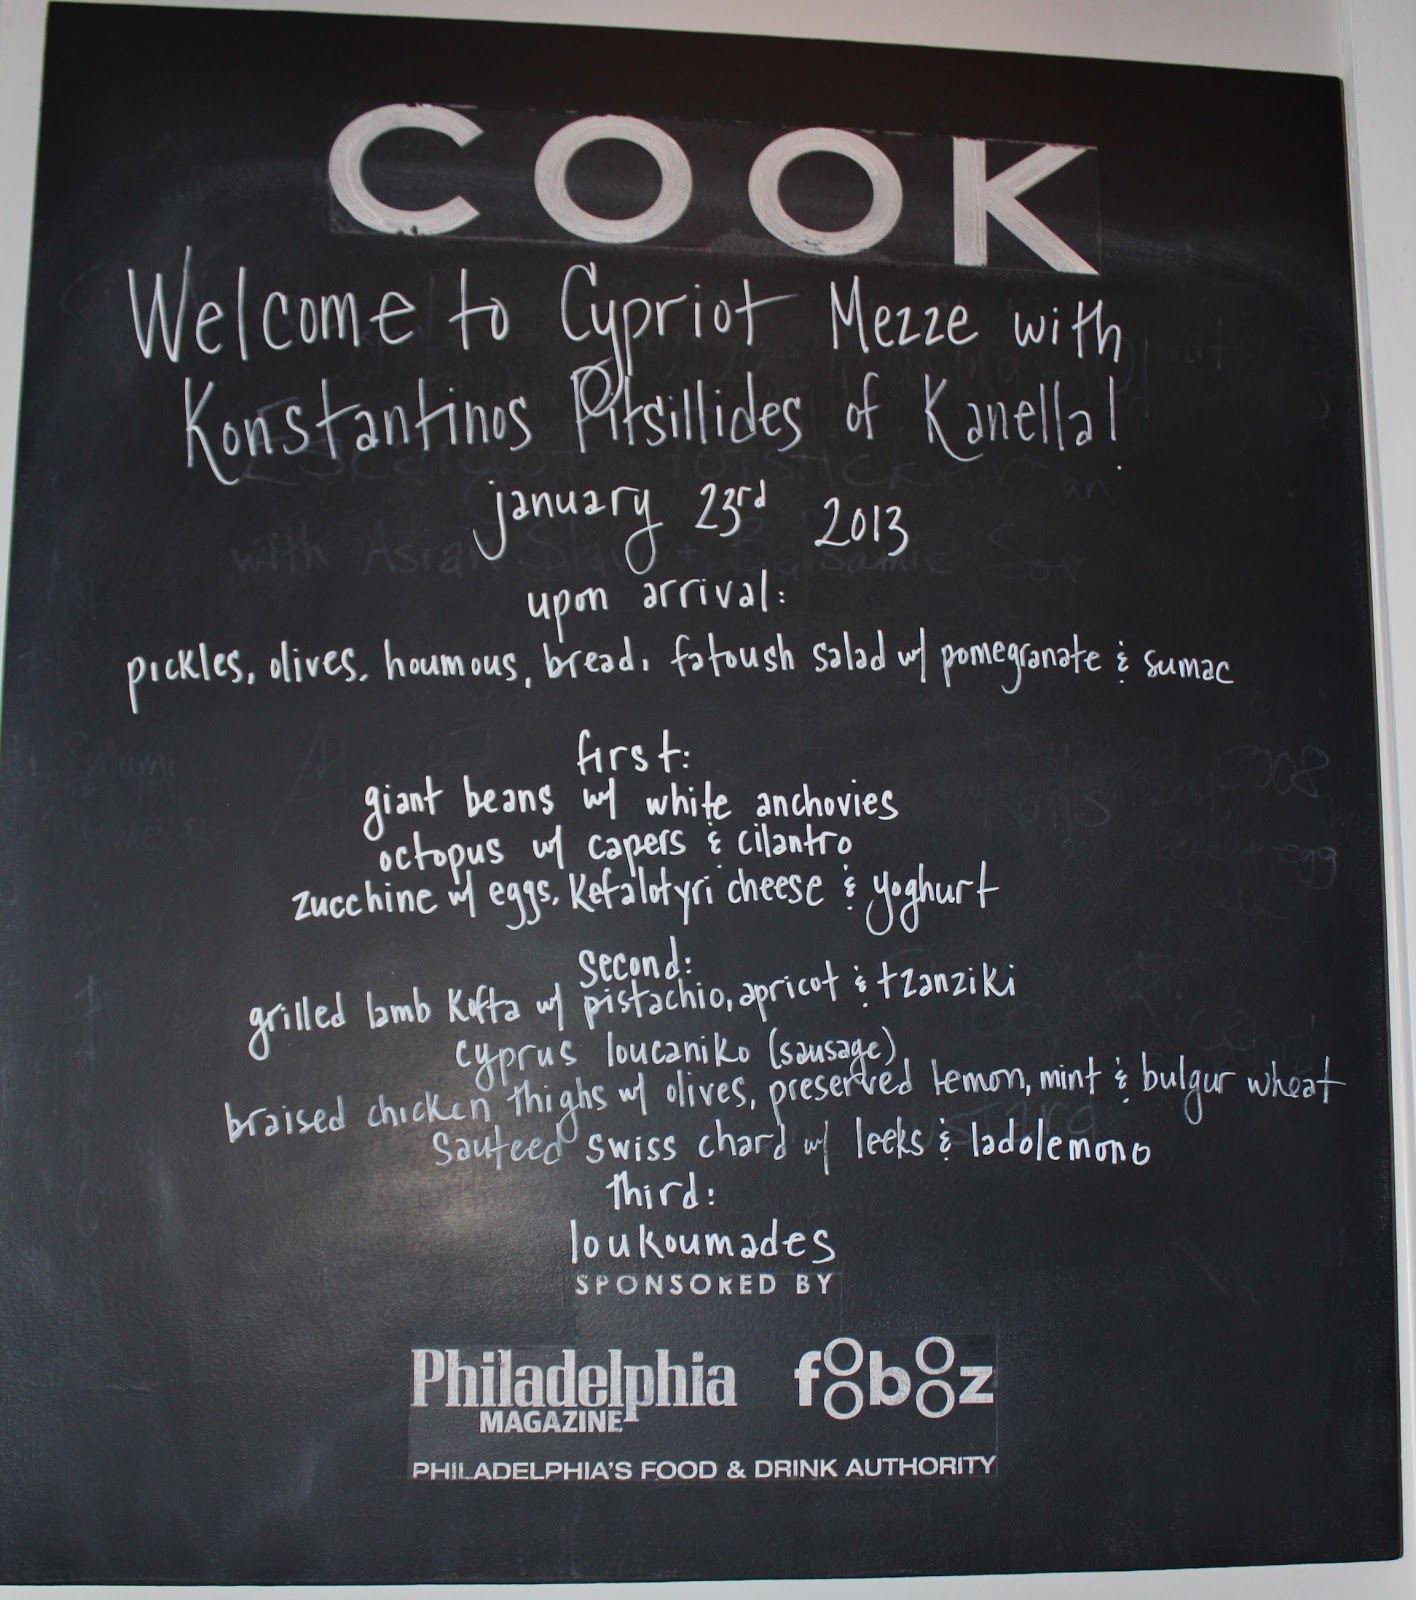 COOK
Welcome to Cypriot Mezze with
Konstantinos Pitsillides of Kanella!
january 23rd 2013
upon arrival:
pickles, olives, houmous, bread, fatoush salad w/ pomegranate & sumac
first:
giant beans w/ white anchovies
octopus w/ capers & cilantro
zucchine w/ eggs, Kefalotyri cheese & yoghurt
second:
grilled lamb Kofta w/ pistachio, apricot & tzanziki
cyprus loucaniko (sausage)
braised chicken thighs w/ olives, preserved lemon, mint & bulgur wheat
sauteed swiss chard w/ leeks & ladolemono
third:
loukoumades
SPONSORED BY
Philadelphia foobooz
MAGAZINE
PHILADELPHIA'S FOOD & DRINK AUTHORITY